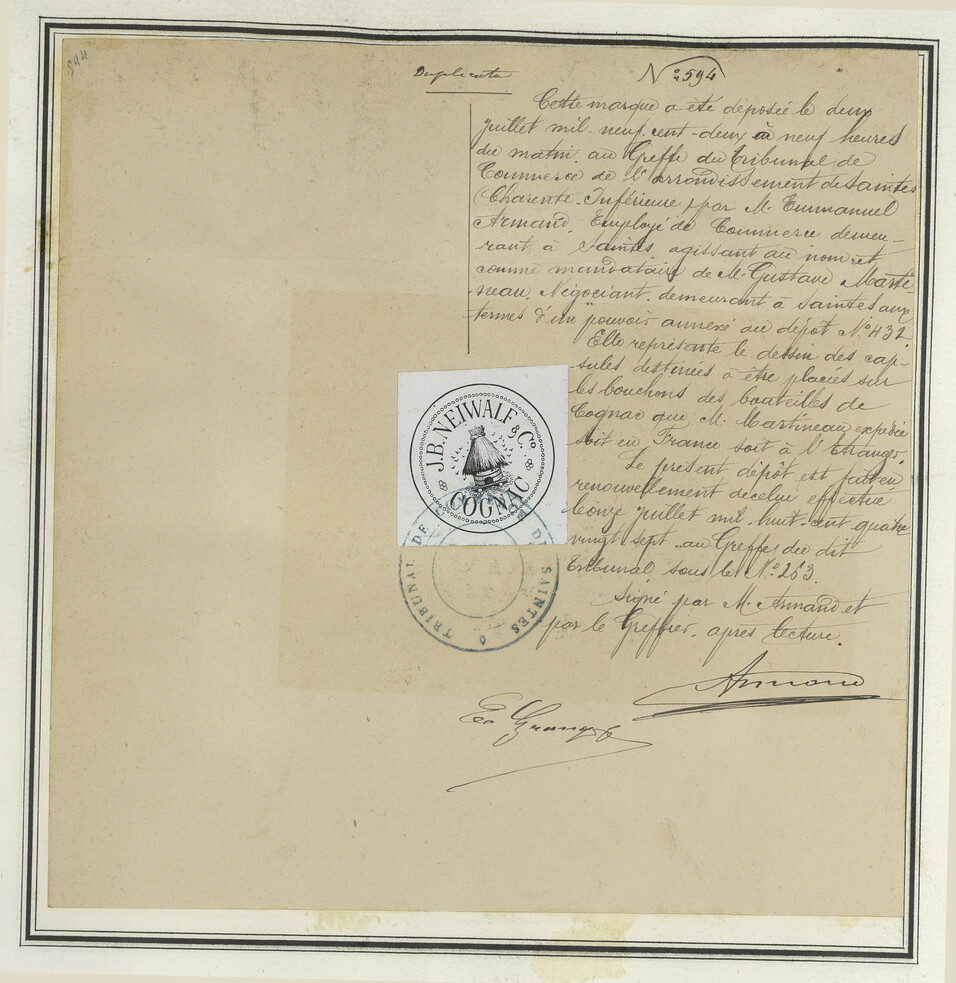 594
Duplicata
N° 594
Cette marque a été déposée le deux
juillet mil neuf cent deux à neuf heures
du matin au Greffe du Tribunal de
Commerce de l'arrondissement de Saintes
(Charente-Inférieure) par M. Emmanuel
Armand, Employé de Commerce demeu-
rant à Saintes agissant au nom et
comme mandataire de M. Gustave Marti-
neau, Négociant, demeurant à Saintes aux
termes d'un pouvoir annexé au dépôt N° 432.
Elle représente le dessin des cap-
sules destinées à être placées sur
les bouchons des bouteilles de
Cognac que M. Martineau expédie
soit en France soit à l'Etranger.
Le présent dépôt est fait en
renouvellement de celui effectué
le onze juillet mil huit cent quatre
vingt sept au Greffe du dit
Tribunal sous le N° 263.
Signé par M. Armand et
par le Greffier, après lecture.
J.B. NEIWALF & Co.
COGNAC
TRIBUNAL DE
DE SAINTES
Armand